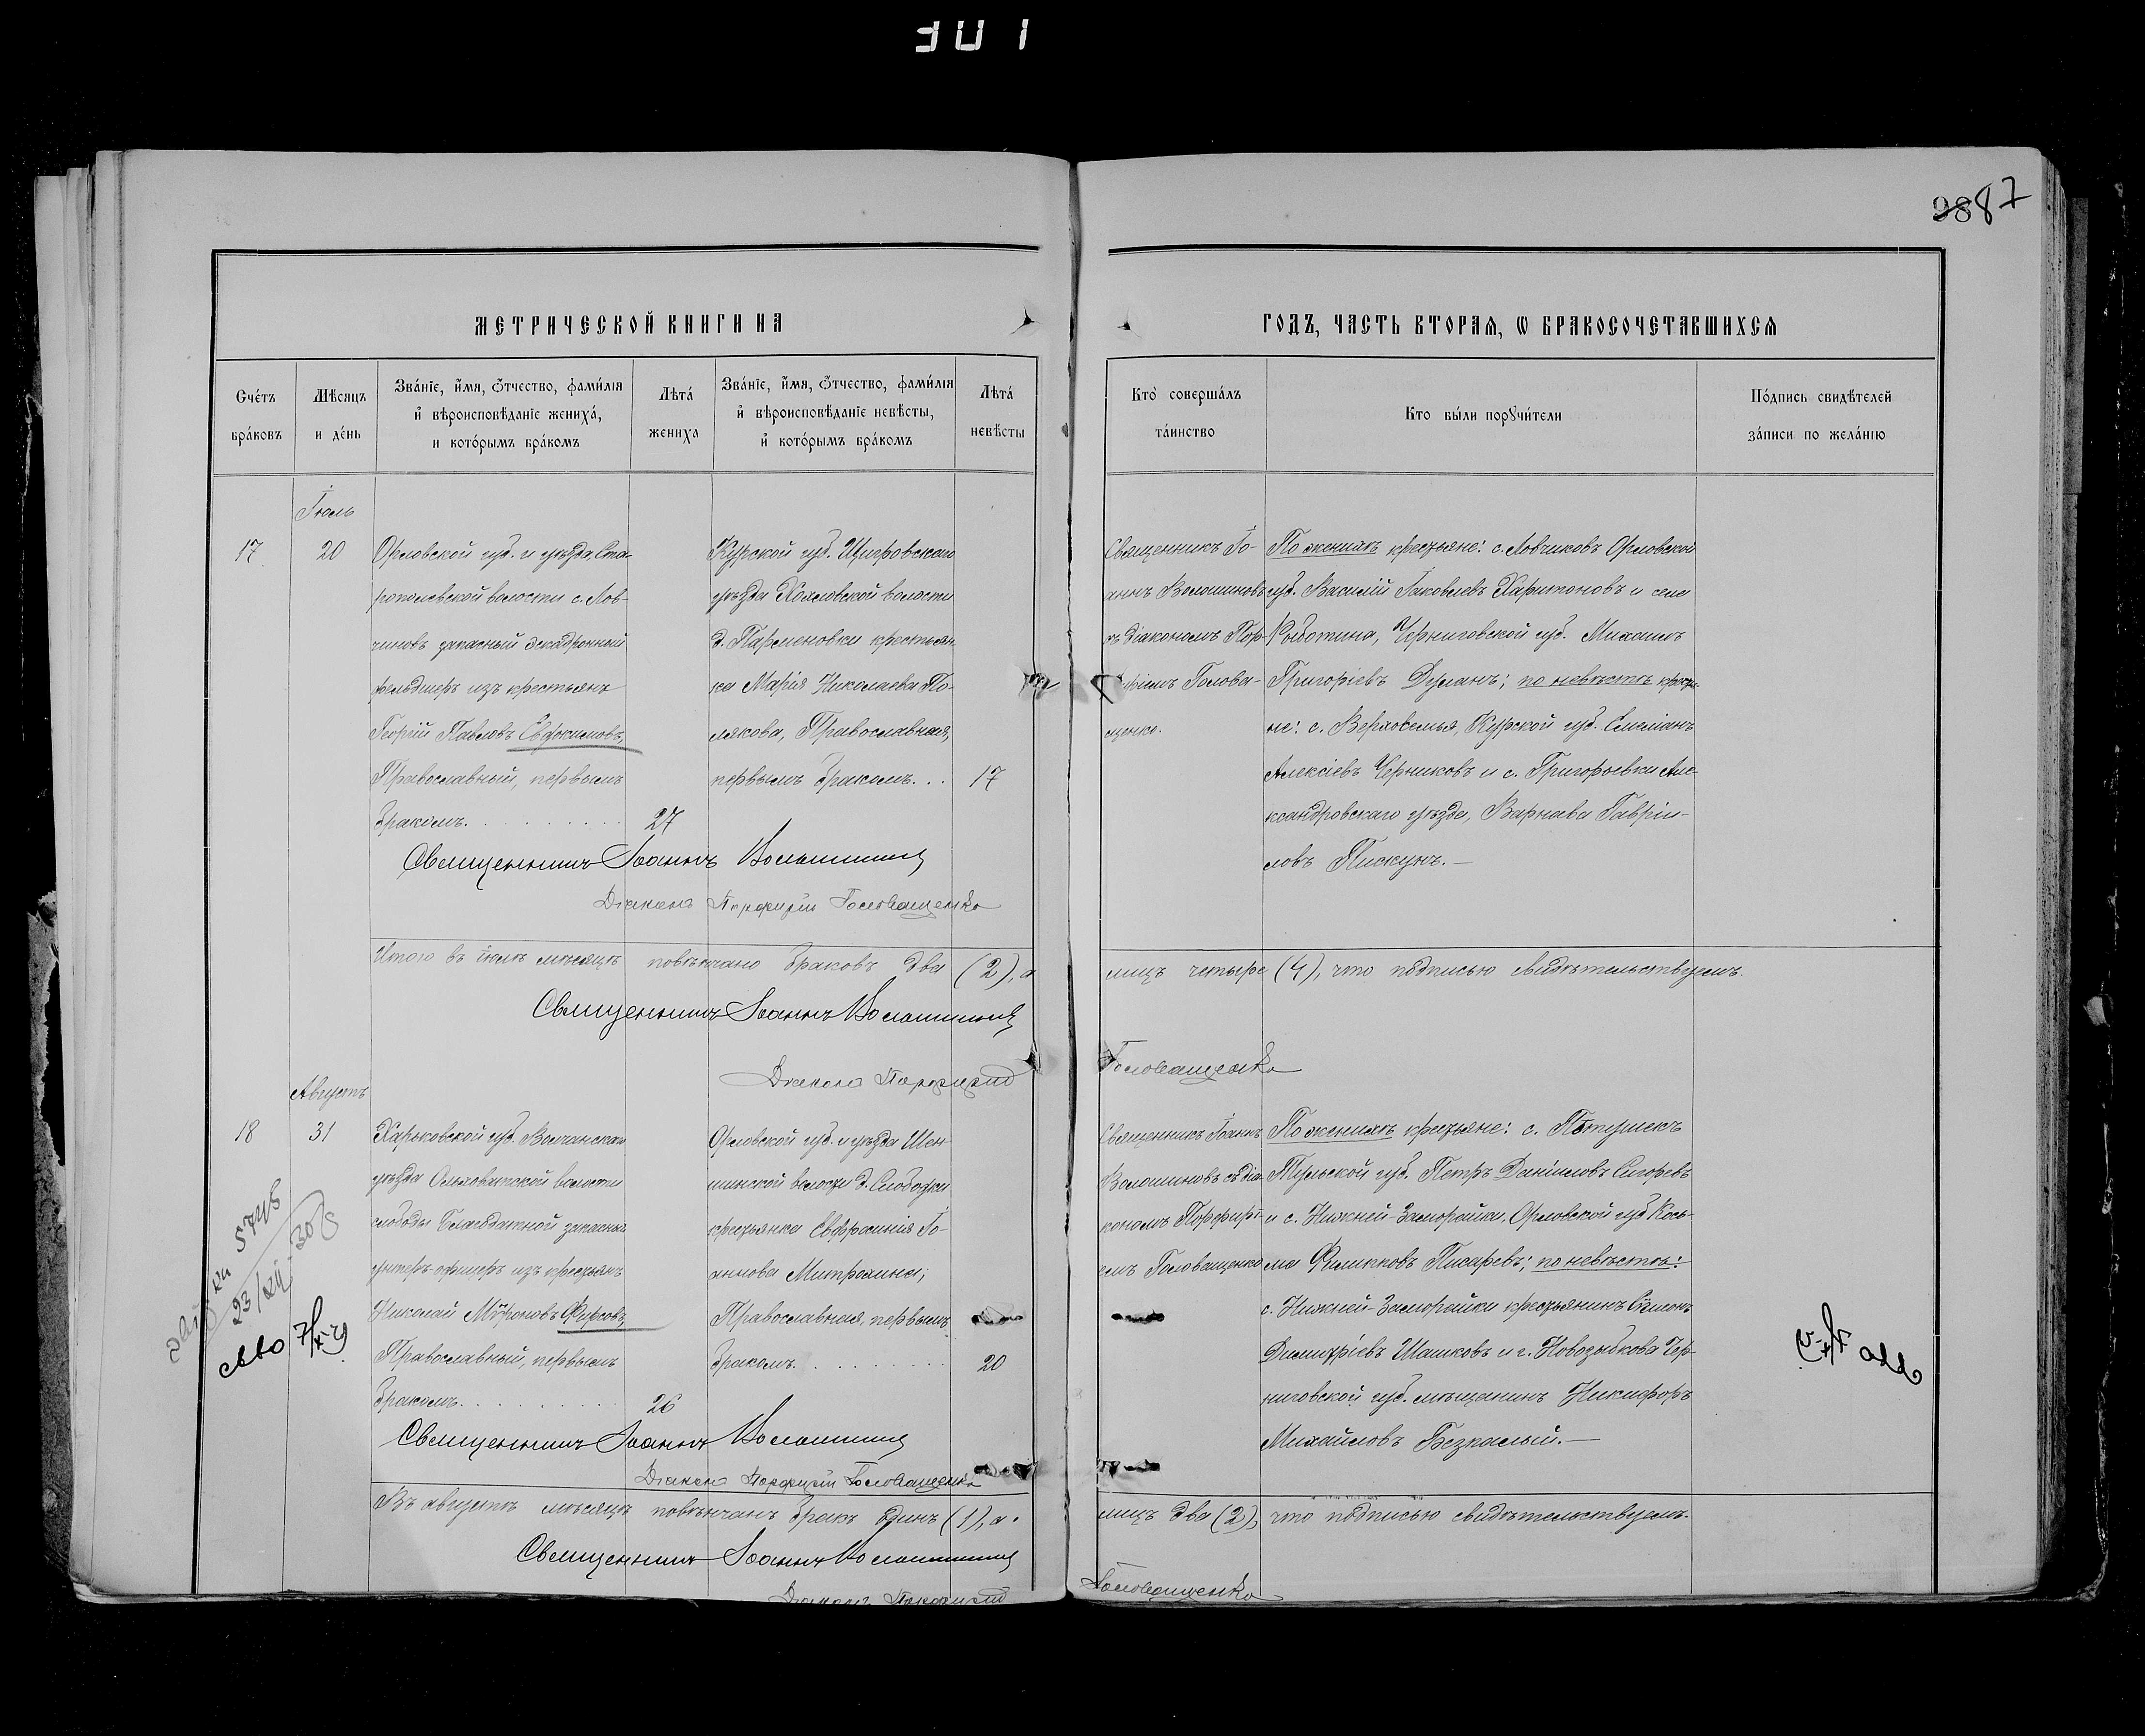 301
98 87
МЕТРИЧЕСКОЙ КНИГИ НА
ГОДЪ, ЧАСТЬ ВТОРАЯ, Ѡ БРАКОСОЧЕТАВШИХСЯ
Счéтъ брáковъ
Мѣсяцъ и дéнь
Звáнїе, и҆́мя, ѻ҆́тчество, фами́лїя
и҆ вѣроисповѣданїе женихá,
и котóрымъ брáкомъ
Лѣтá женихá
Звáнїе, и҆́мя, ѻ҆́тчество, фами́лїя
и҆ вѣроисповѣданїе невѣсты,
и҆ котóрымъ брáкомъ
Лѣтá невѣсты
Кто̀ совершáлъ тáинство
Кто бы́ли порꙋчи́тели
Пóдпись свидѣтелей
зáписи по желáнїю
Іюль
17
20
Орловской губ. и уѣзда, Ста-
ропольской волости с. Лов-
чиковъ запасный эскадронный
фельдшеръ изъ крестьянъ
Георгій Павловъ Евдокимовъ,
Православный, первымъ
бракомъ.
27
Курской губ. Щигровскаго
уѣзда Хохловской волости
д. Парменовки крестьян-
ка Марія Николаева По-
лякова, Православная,
первымъ бракомъ...
17
Священникъ Іо-
аннъ Волошиновъ
съ діакономъ Пор-
фиріемъ Голова-
щенко.
По женихѣ крестьяне: с. Ловчиковъ Орловской
губ. Василій Іаковлевъ Харитоновъ и села
Рыботина, Черниговской губ. Михаилъ
Григоріевъ Дуланъ; по невѣстѣ крестья-
не: с. Верхоселья, Курской губ. Емеліанъ
Алексіевъ Черниковъ и с. Григорьевки Але-
ксандровскаго уѣзда, Варнава Гаврии-
ловъ Пискунъ.—
Священникъ Іоаннъ Волошиновъ
Діаконъ Порфирій Головащенко
Итого въ іюлѣ мѣсяцѣ повѣнчано браковъ два (2), а
лицъ четыре (4), что подписью свидѣтельствуемъ.
Священникъ Іоаннъ Волошиновъ
Діаконъ Порфирій
Головащенко
Августъ
18
31
Харьковской губ. Волчанскаго
уѣзда Ольховатской волости
слободы запасный
унтеръ-офицеръ изъ крестьянъ
Николай Мѵроновъ Фирсовъ,
Православный, первымъ
бракомъ.
26
Орловской губ. и уѣзда Шен-
шинской волости д. Слободки
крестьянка Евфросинія Іо-
аннова Митрохина;
Православная, первымъ
бракомъ.
20
Священникъ Іоаннъ
Волошиновъ съ діа-
кономъ Порфирі-
емъ Головащенко
По женихѣ крестьяне: с. Пѣтушекъ
Тульской губ. Петръ Даніиловъ
и с. Нижней-Заморайки, Орловской губ. Кось-
ма Филипповъ Писаревъ; по невѣстѣ:
с. Нижней-Заморайки крестьянинъ Сѵмеонъ
Димитріевъ Шашковъ и г. Новозыбкова Чер-
ниговской губ. мѣщанинъ Никифоръ
Михайловъ Безпалый.—
Священникъ Іоаннъ Волошиновъ
Діаконъ Порфирій Головащенко
Въ августѣ мѣсяцѣ повѣнчанъ бракъ одинъ (1), а
лицъ два (2), что подписью свидѣтельствуемъ.
Священникъ Іоаннъ Волошиновъ
Діаконъ Порфирій
Головащенко